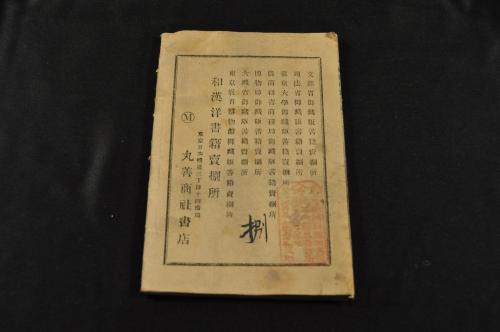 文部省御藏版書籍賣捌所
司法省御藏版書籍賣捌所
東京大學御藏版書籍賣捌所
農商務省商務局御藏版書籍賣捌所
博物局御藏版書籍賣捌所
大藏省御藏版書籍賣捌所
東京教育博物館御藏版書籍賣捌所
和漢洋書籍賣捌所
東京日本橋通三丁目十四番地
M
丸善商社書店
捌